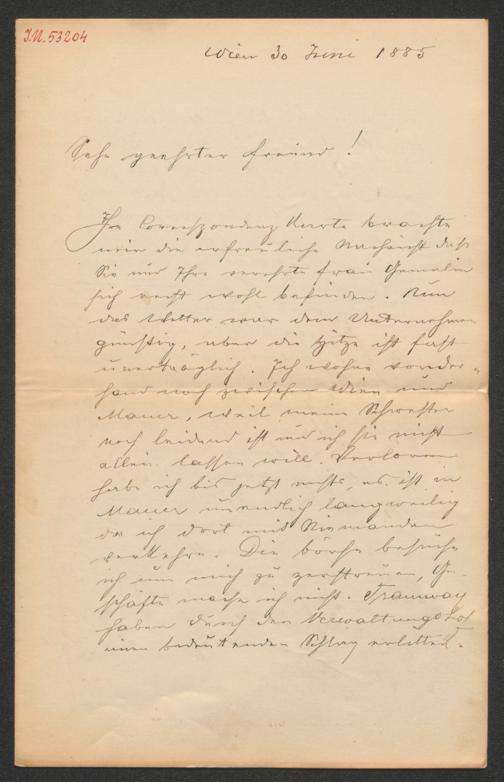 I.N. 53204
Wien 30 Juni 1885
Sehr geehrter Freund!
Ihre Correspondenz Karte brachte
mir die erfreuliche Nachricht daß
Sie und Ihre verehrte Frau Gemalin
sich recht wohl befinden. Nun
das Wetter war dem Unternehmen
günstig, aber die Hitze ist fast
unerträglich. Ich wohne vorder-
hand noch zwischen Wien und
Mauer, weil meine Schwester
noch leidend ist und ich sie nicht
allein lassen will. Verloren
habe ich bis jetzt nichts, es ist in
Mauer unendlich langweilig
da ich dort mit Niemanden
verkehre. Die Börse besuche
ich um mich zu zerstreuen, Ge-
schäfte mache ich nicht. Tramway
haben durch den Verwaltungshof
einen bedeutenden Schlag erlitten.